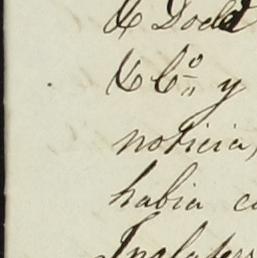 & Dodd
& Cº y
noticia,
habia c
Inglater